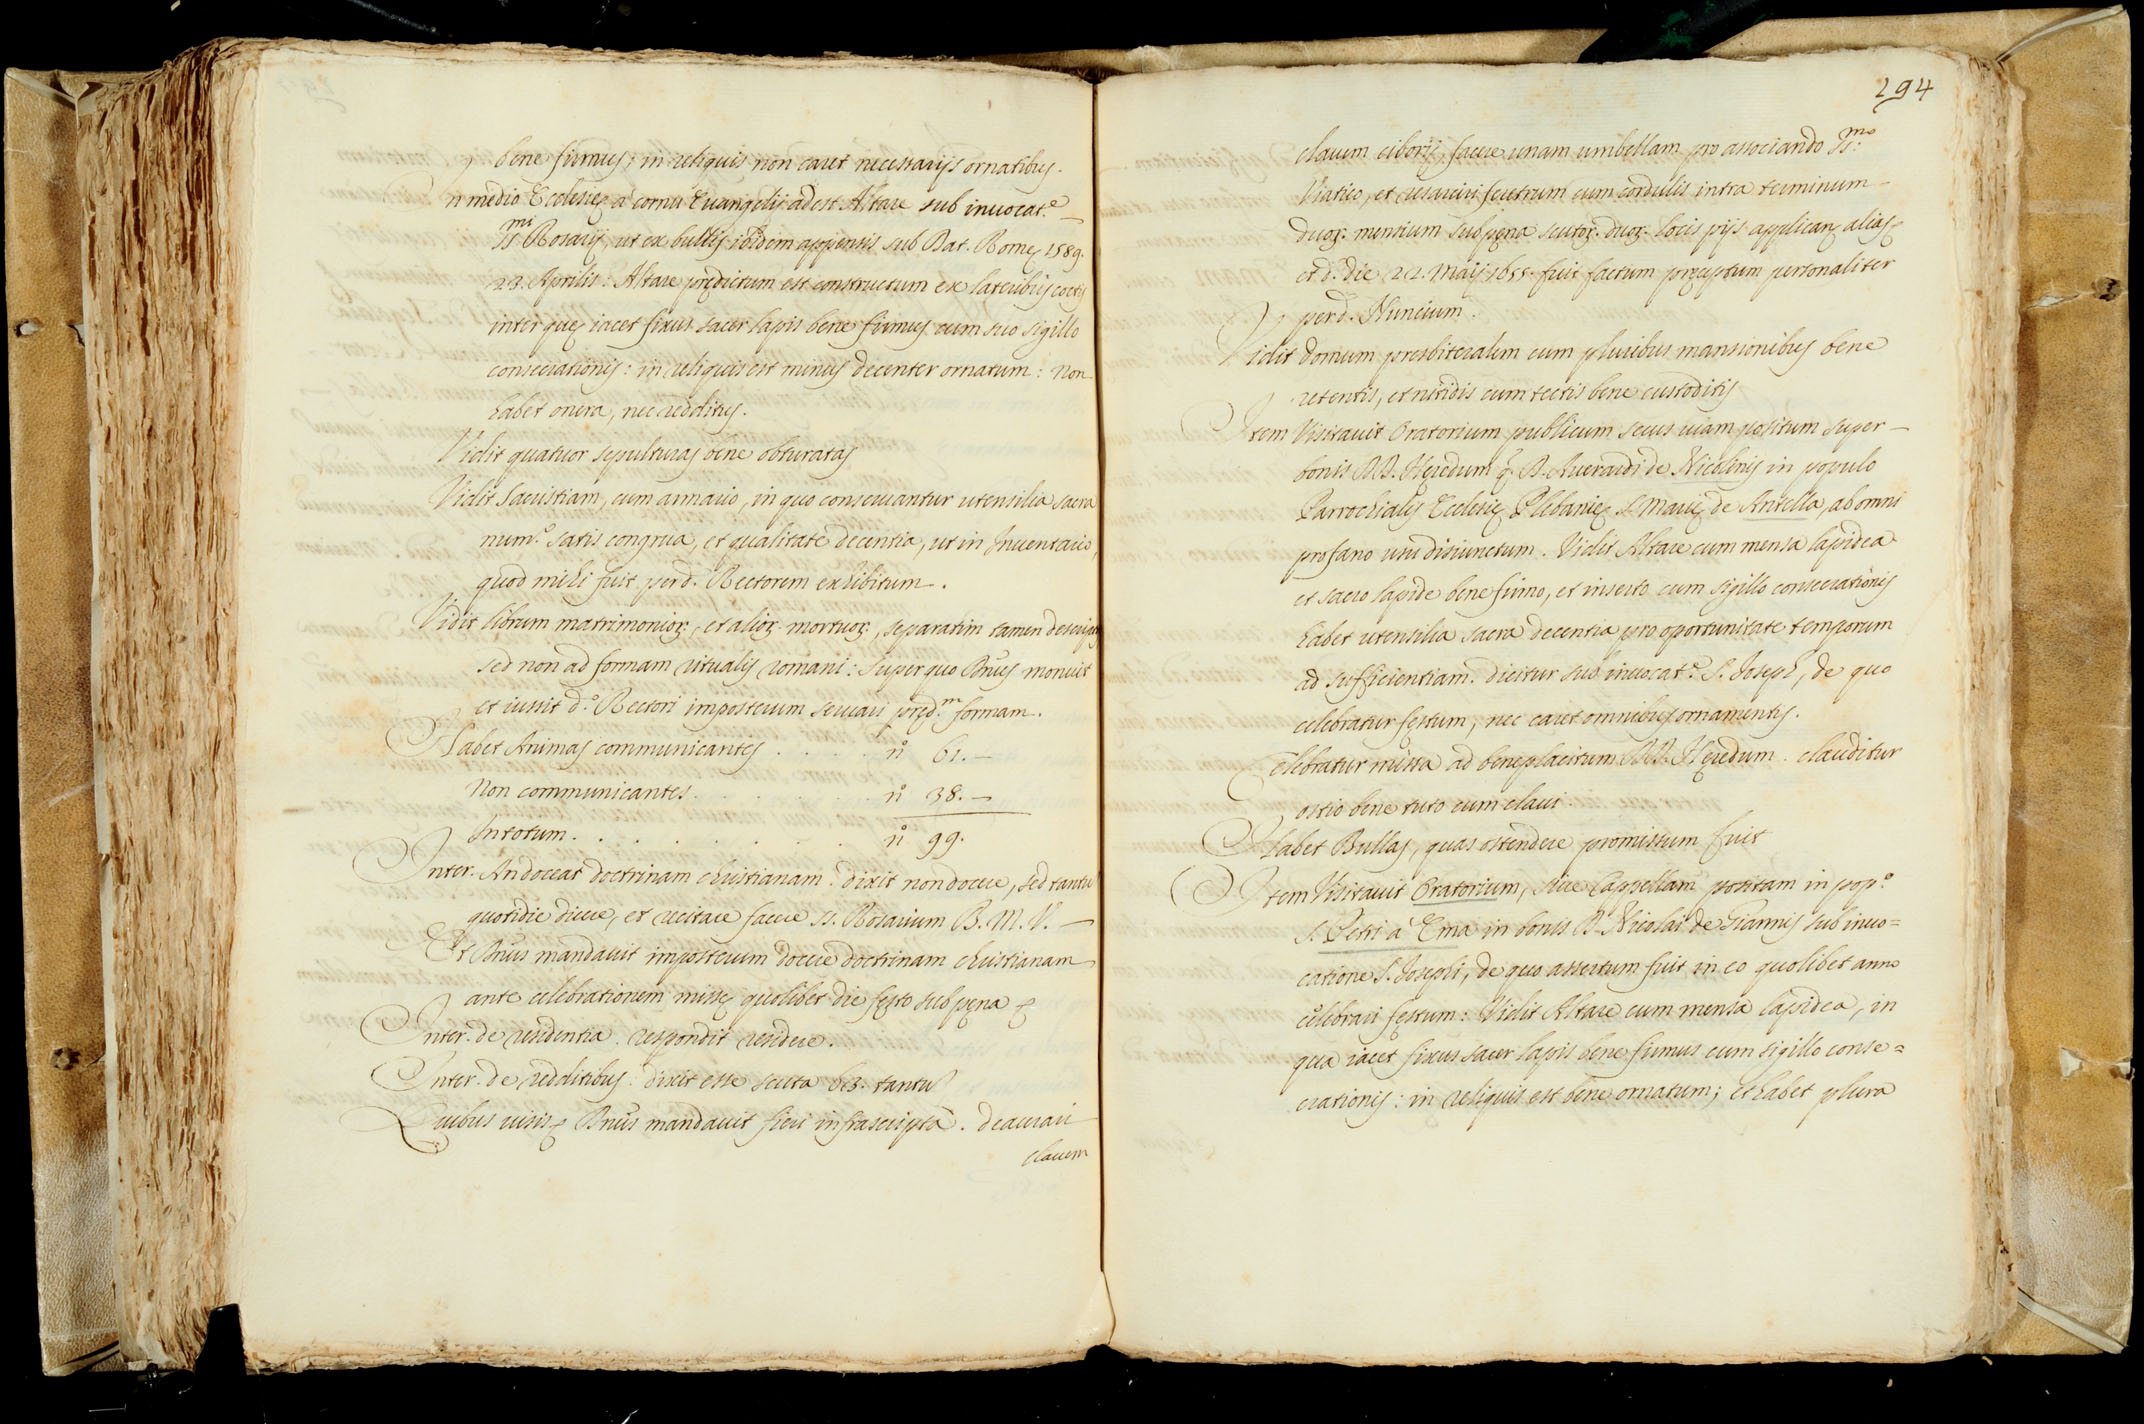 bene firmus; in reliquis non caret necessarijs ornatibus.
In medio Ecclesię à cornù Euangelij adest Altare sub inuocat.e
SS.mi Rosarij, ut ex bullis ibidem appensis sub Dat. Romę 1589.
23. Aprilis: Altare prędictum est constructum ex lateribus coctis
inter quę iacet fixus sacer lapis bene firmus cum suo sigillo
consecrationis: in reliquis est minus decenter ornatum: Non
habet onera, nec redditus.
Vidit quatuor sepulturas bene obturatas
Vidit Sacristiam, cum armario, in quo conseruantur utensilia sacra
num.o satis congrua, et qualitate decentia, ut in Inuentario,
quod mihi fuit per d. Rectorem exhibitum.
Vidit librum matrimonioꝝ, et alioꝝ mortuoꝝ, separatim tamen descriptos
sed non ad formam ritualis romani: super quo Dn̄us monuit
et iussit d.o Rectori imposterum seruari pręd.m formam.
Habet Animas communicantes . . . . n.o 61. —
Non communicantes . . . . . n.o 38. —
In totum . . . . . . . . n.o 99.
Inter. An doceat doctrinam christianam? dixit non docere, sed tantu
quotidie dicere, et recitare facere SS. Rosarium B. M. V. —
Et Dn̄us mandauit imposterum docere doctrinam christianam
ante celebrationem missę quolibet die festo sub pęna &
Inter. de residentia. respondit residere.
Inter. de redditibus: dixit esse scuta 63. tantu
Quibus uisis & Dn̄us mandauit fieri infrascripta. deaurari
clauem
294
clauem ciborij, facere unam umbellam pro associando SS.mo
Viatico, et resarciri feretrum cum cordulis intra terminum
duoꝝ mensium sub pęna scutoꝝ duoꝝ locis pijs applicanꝝ alias &
et d. die 22. Maij 1655. fuit factum pręceptum personaliter
per d. Nuncium.
Vidit domum presbiteralem cum pluribus mansionibus bene
retentis, et nitidis cum tectis bene custoditis
Item Visitauit Oratorium publicum secus uiam positum super
bonis DD. Heredum q. D. Auerardi de Nicolinis in populo
Parrochialis Ecclesię Plebanię S. Marię de Antella, ab omni
profano usu disiunctum. Vidit Altare cum mensa lapidea
et sacro lapide bene firmo, et inserto cum sigillo consecrationis
habet utensilia sacra decentia pro oportunitate temporum
ad sufficientiam. dicitur sub inuocat.e S. Joseph, de quo
celebratur festum, nec caret omnibus ornamentis.
Celebratur missa ad beneplacitum DD. Heredum. clauditur
ostio bene tuto cum claui.
Habet Bullas, quas ostendere promissum fuit
Item Visitauit Oratorium, siue Cappellam positam in pop.o
S. Petri à Ema in bonis D. Nicolai de Giannis sub inuo=
catione S. Josephi, de quo assertum fuit in eo quolibet anno
celebrari festum: Vidit Altare cum mensa lapidea, in
qua iacet fixus sacer lapis bene firmus cum sigillo conse=
crationis: in reliquis est bene ornatum; et habet plura